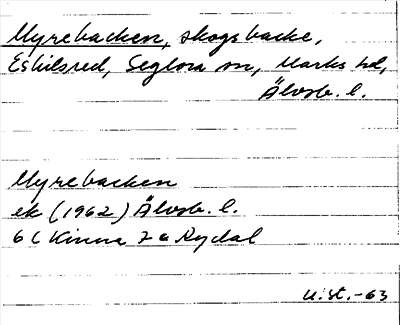 Myrebacken, skogsbacke,
Eskilsred, Seglora sn, Marks hd,
Älvsb. l.
Myrebacken
ek (1962) Älvsb. l.
6 C Kinna 7 a Rydal
U. St. -63